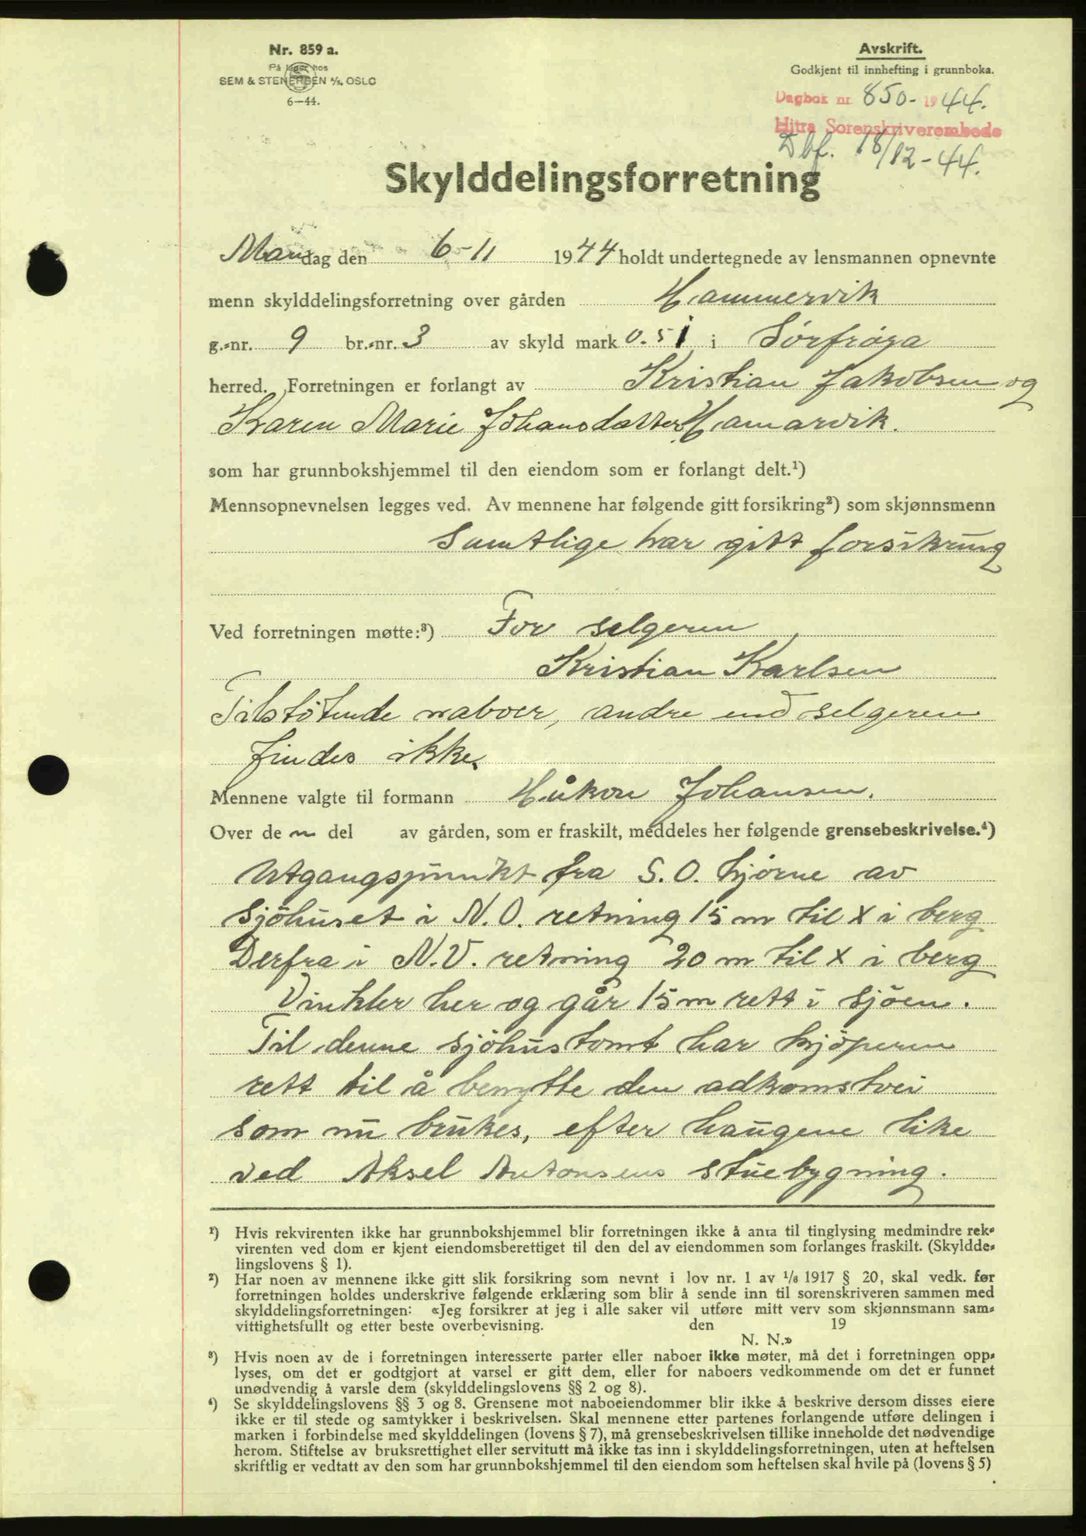 Nr. 859 a.
På lager hos
SEM & STENERSEN A/S, OSLO
6—44.
Avskrift.
Godkjent til innhefting i grunnboka.
Dagbok nr. 850- 1944.
Hitra Sorenskriverembede
Dbf. 18/12-44.
Skylddelingsforretning
Mandag den 6-11 1944 holdt undertegnede av lensmannen opnevnte
menn skylddelingsforretning over gården Hammervik
g.-nr. 9 br.-nr. 3 av skyld mark 0.51 i Sørfrøya
herred. Forretningen er forlangt av Kristian Jakobsen og
Karen Marie Johansdatter Hamarvik.
som har grunnbokshjemmel til den eiendom som er forlangt delt.¹)
Mennsopnevnelsen legges ved. Av mennene har følgende gitt forsikring²) som skjønnsmenn
Samtlige har gitt forsikring
Ved forretningen møtte:³) For selgeren
Kristian Karlsen
Tilstøtende naboer, andre end selgeren
findes ikke.
Mennene valgte til formann Håkon Johansen.
Over de n del av gården, som er fraskilt, meddeles her følgende grensebeskrivelse.⁴)
Utgangspunkt fra S.O. hjørne av
sjøhuset i N.O. retning 15 m til X i berg
Derfra i N.V. retning 20 m til X i berg
Vinkler her og går 15 m rett i sjøen.
Til denne sjøhustomt har kjøperen
rett til å benytte den adkomstvei
som nu brukes, efter haugene like
ved Aksel Antonsens stuebygning.
¹) Hvis rekvirenten ikke har grunnbokshjemmel blir forretningen ikke å anta til tinglysing medmindre rek-
virenten ved dom er kjent eiendomsberettiget til den del av eiendommen som forlanges fraskilt. (Skyldde-
lingslovens § 1).
²) Har noen av mennene ikke gitt slik forsikring som nevnt i lov nr. 1 av 1/6 1917 § 20, skal vedk. før
forretningen holdes underskrive følgende erklæring som blir å sende inn til sorenskriveren sammen med
skylddelingsforretningen: «Jeg forsikrer at jeg i alle saker vil utføre mitt verv som skjønnsmann sam-
vittighetsfullt og etter beste overbevisning. den 19
N. N.»
³) Hvis noen av de i forretningen interesserte parter eller naboer ikke møter, må det i forretningen opp-
lyses, om det er godtgjort at varsel er gitt dem, eller for naboers vedkommende om det er funnet
unødvendig å varsle dem (skylddelingslovens §§ 2 og 8).
⁴) Se skylddelingslovens §§ 3 og 8. Grensene mot naboeiendommer blir ikke å beskrive dersom disses eiere
ikke er til stede og samtykker i beskrivelsen. Skal mennene etter partenes forlangende utføre delingen i
marken i forbindelse med skylddelingen (lovens § 7), må grensebeskrivelsen tillike inneholde det nødvendige
herom. Stiftelse av bruksrettighet eller servitutt må ikke tas inn i skylddelingsforretningen, uten at heftelsen
skriftlig er vedtatt av den som har grunnbokshjemmel til den eiendom som heftelsen skal hvile på (lovens § 5)